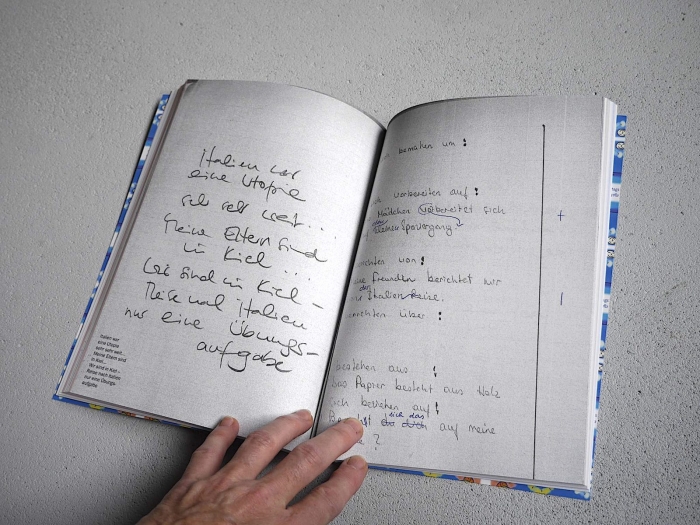 Italien war
eine Utopie
sehr sehr weit...
Meine Eltern sind
in Kiel...
Wir sind in Kiel –
Reise nach Italien
nur eine Übungs-
aufgabe
Italien war
eine Utopie
sehr sehr weit...
Meine Eltern sind
in Kiel...
Wir sind in Kiel –
Reise nach Italien
nur eine Übungs-
aufgabe
bemühen um :
vorbereiten auf :
Mädchen vorbereitet sich
+
von :
Freunden berichtet mir
Italien
|
über :
bestehen aus :
Das Papier besteht aus Holz
sich beziehen auf :
sich das
auf meine
?